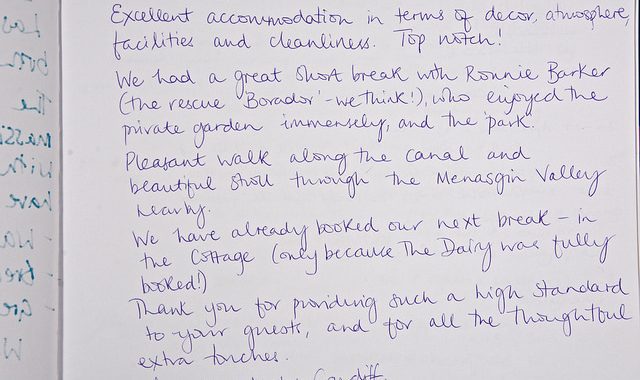 Excellent accommodation in terms of decor, atmosphere,
facilities and cleanliness. Top notch!
We had a great short break with Ronnie Barker
(the rescue 'Borador' - we think!), who enjoyed the
private garden immensely, and the 'park'.
Pleasant walk along the canal and
beautiful stroll through the Menasgin Valley
nearby.
We have already booked our next break - in
the Cottage (only because The Dairy was fully
booked!)
Thank you for providing such a high standard
to your guests, and for all the thoughtful
extra touches.
Cardiff.